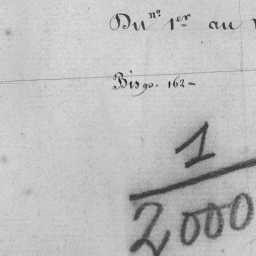 Du n° 1er au
Bis 90. 162-
1
2000